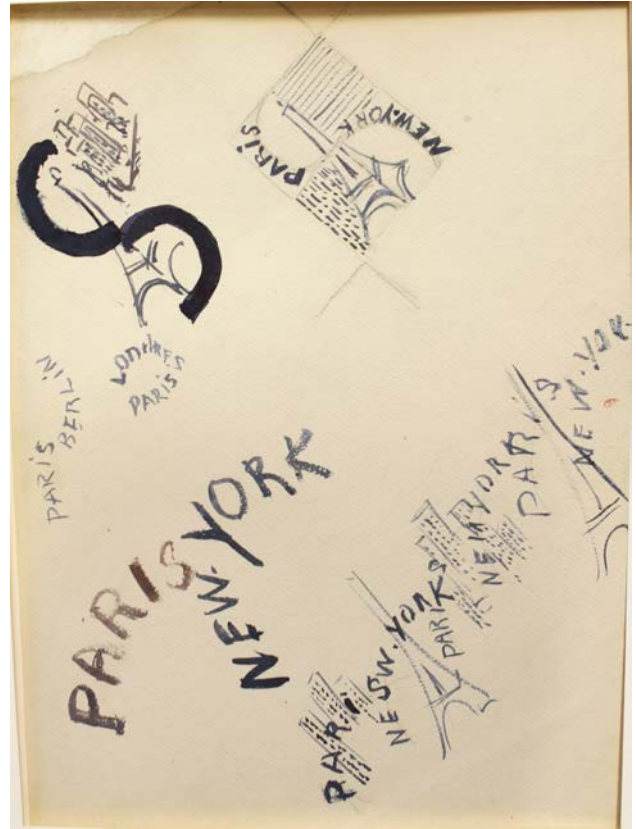 PARIS
NEW.YORK
LONDRES
PARIS
PARIS
BERLIN
PARIS
NEW.YORK
PARIS
NEW.YORK
PARIS
NEW.YORK
PARIS
NEW.YORK